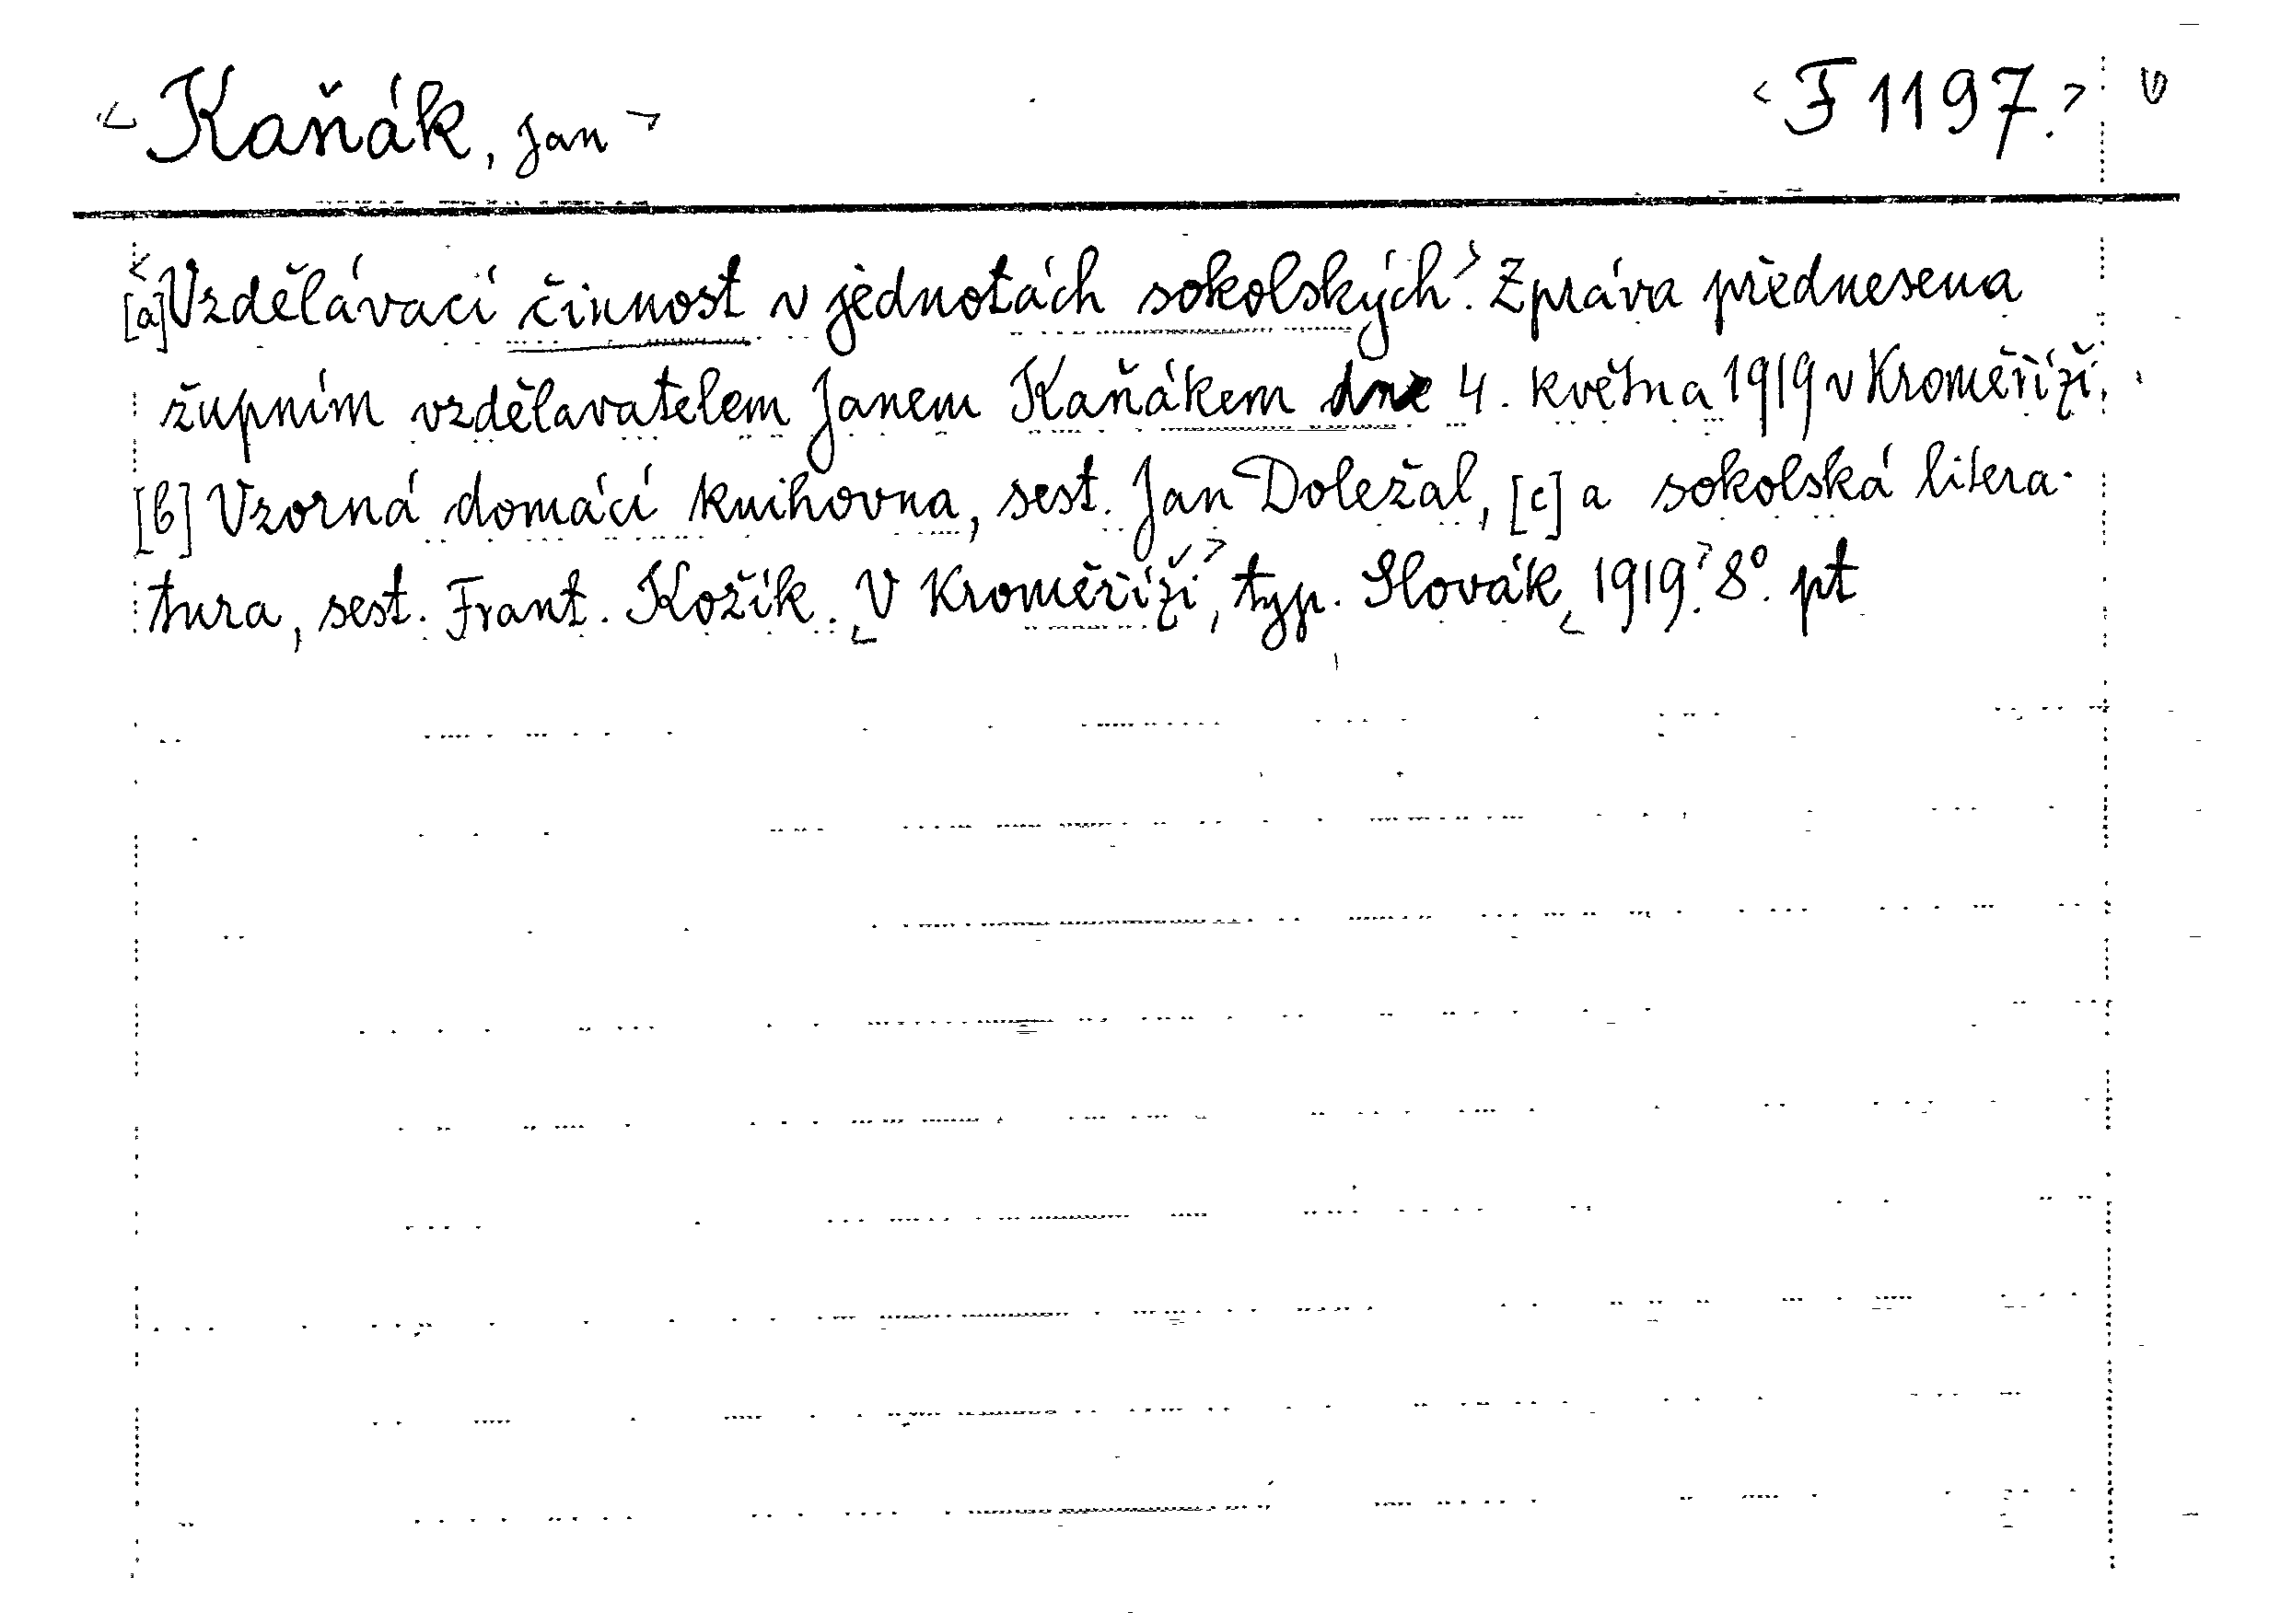 <Kaňák, Jan> <F 1197.>
<[a] Vzdělávací činnost v jednotách sokolských>. Zpráva přednesena
župním vzdělavatelem Janem Kaňákem dne 4. května 1919 v Kroměříži.
[b] Vzorná domácí knihovna, sest. Jan Doležal, [c] a sokolská litera-
tura, sest. Frant. Kožík. <V Kroměříži>, typ. Slovák <1919>. 8°. pt